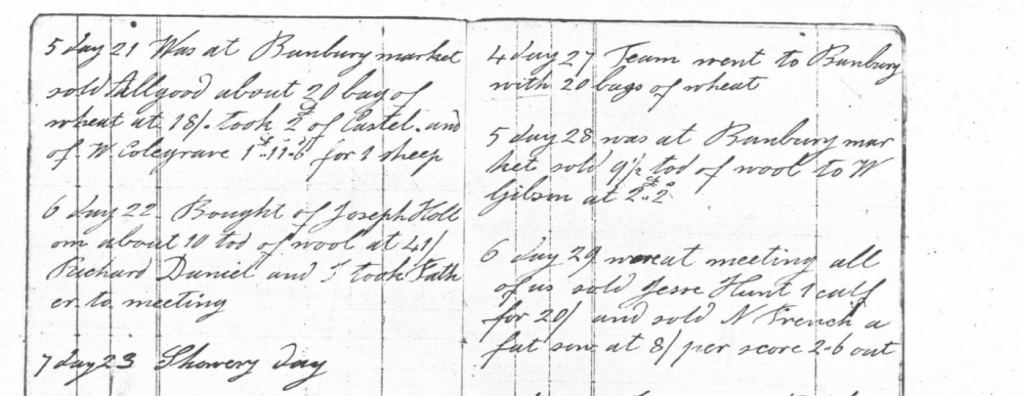 5 day 21 Was at Banbury market
sold Allgood about 20 bag of
wheat at 18/. took 2£ of Castel. and
of W Colegrave 1£.11s.6d for 1 sheep
6 day 22 Bought of Joseph Holl
om about 10 tod of wool at 41/
Richard Daniel and I took Fath
er to meeting
7 day 23 Showery day
4 day 27 Team went to Banbury
with 20 bags of wheat
5 day 28 was at Banbury mar
ket sold 9½ tod of wool to W
Gilson at 2£.2s
6 day 29 wereat meeting all
of us sold Jesse Hunt 1 calf
for 20/ and sold N French a
fat sow at 8/ per score 2-6 out